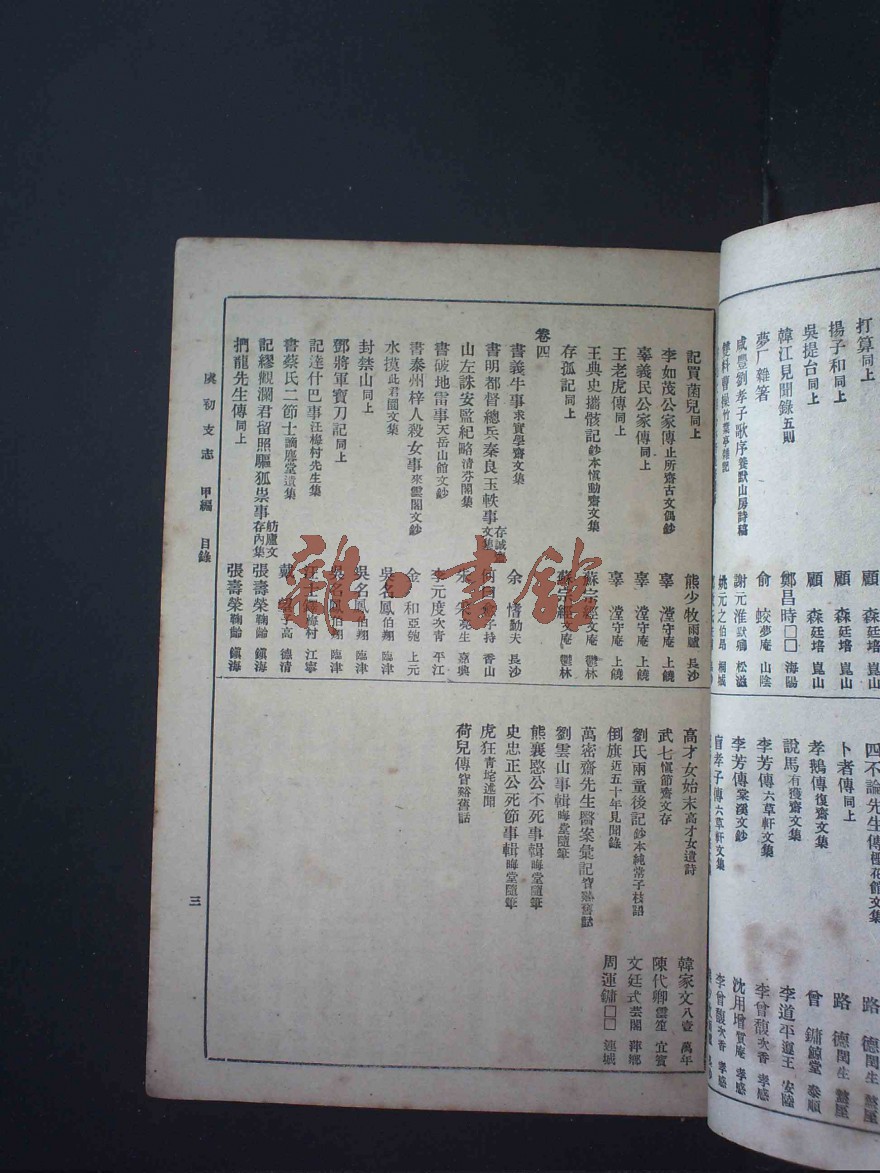 打算同上　顧　森廷培　崑山
揚子和同上　顧　森廷培　崑山
吳提台同上　顧　森廷培　崑山
韓江見聞錄五則　鄭昌時□□　海陽
夢厂雜箸　俞　蛟夢庵　山陰
咸豐劉孝子歌序養默山房詩稿　謝元淮默卿　松滋
竹葉亭雜記　姚元之伯昂　桐城
四不論先生傳檉花館文集　路　德閏生　盩厔
卜者傳同上　路　德閏生　盩厔
孝鵝傳復齋文集　曾　鏞鯨堂　泰順
說馬有獲齋文集　李道平遵王　安陸
李芳傳六草軒文集　李曾馥次香　孝感
李芳傳棠溪文鈔　沈用增質庵　孝感
盲孝子傳六草軒文集　李曾馥次香　孝感
記買菌兒同上　熊少牧雨臚　長沙
李如茂公家傳止所齋古文偶鈔　辜　漟守庵　上饒
辜義民公家傳同上　辜　漟守庵　上饒
王老虎傳同上　辜　漟守庵　上饒
王典史攜骸記鈔本愼動齋文集　蘇宗經文庵　鬱林
存孤記同上　蘇宗經文庵　鬱林
卷四
書義牛事求實學齋文集　余　㥶勤夫　長沙
書明都督總兵秦良玉軼事存誠齋文集　何曰愈子持　香山
山左誅安監紀略清芬閣集　朱　采亮生　嘉興
書破地雷事天岳山館文鈔　李元度次青　平江
書泰州梓人殺女事來雲閣文鈔　金　和亞匏　上元
水摸此君園文集　吳名鳳伯翔　臨津
封禁山同上　吳名鳳伯翔　臨津
鄧將軍寶刀記同上　吳名鳳伯翔　臨津
記達什巴事汪梅村先生集　汪士鐸梅村　江寧
書蔡氏二節士謫麐堂遺集　戴　望子高　德清
記繆觀瀾君留照驅狐祟事舫廬文存內集　張壽榮鞠齡　鎭海
捫龍先生傳同上　張壽榮鞠齡　鎭海
高才女始末高才女遺詩　韓家文八壹　萬年
武七愼節齋文存　陳代卿雲笙　宜賓
劉氏兩童後記鈔本純常子枝語　文廷式芸閣　萍鄉
倒旗近五十年見聞錄　周運鏞□□　連城
萬密齋先生醫案彙記管豁舊話
劉雲山事輯晦堂隨筆
熊襄愍公不死事輯晦堂隨筆
史忠正公死節事輯晦堂隨筆
虎狂青垞述聞
荷兒傳管豁舊話
虞初支志　甲編　目錄
三
雜·書館